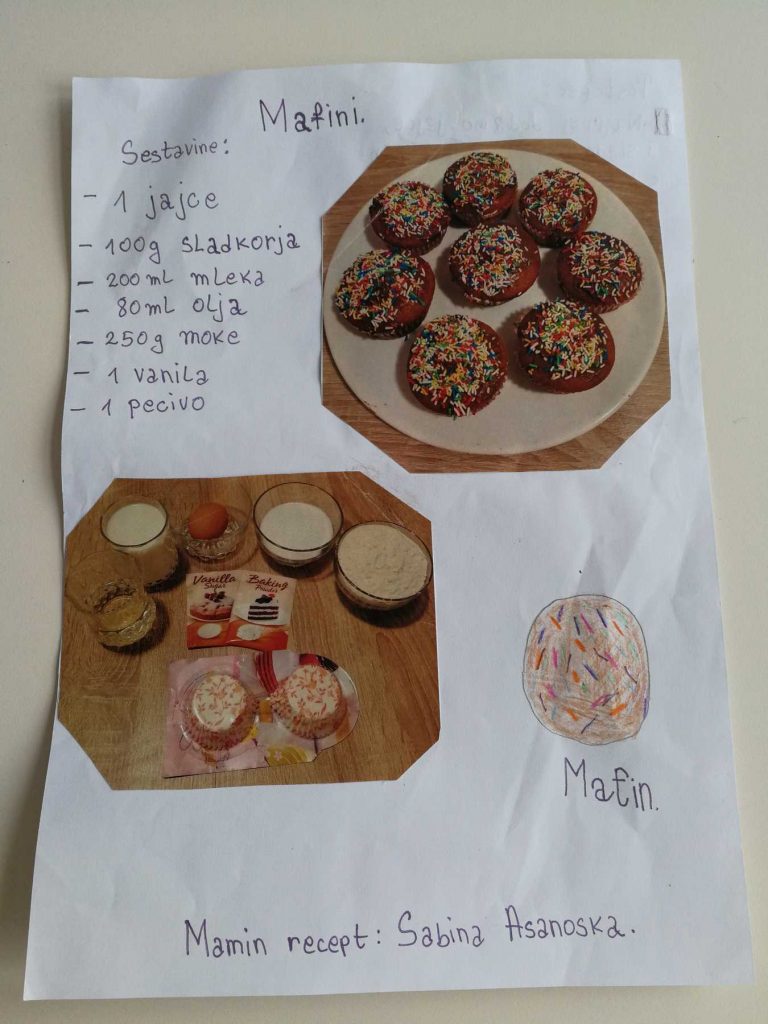 Mafini.
Sestavine:
- 1 jajce
- 100g sladkorja
- 200ml mleka
- 80ml olja
- 250g moke
- 1 vanila
- 1 pecivo
Vanilla Sugar
Baking Powder
Mafin.
Mamin recept: Sabina Asanoska.